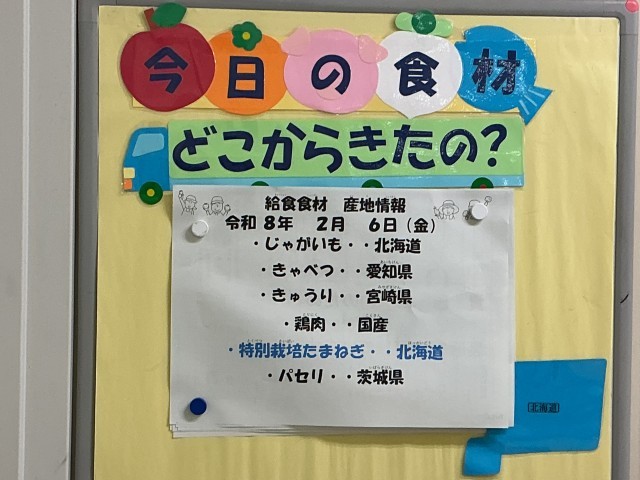 今日の食材
どこからきたの?
給食食材 産地情報
令和 8年 2月 6日(金)
・じゃがいも・・北海道
・きゃべつ・・愛知県
・きゅうり・・宮崎県
・鶏肉・・国産
・特別栽培たまねぎ・・北海道
・パセリ・・茨城県
北海道